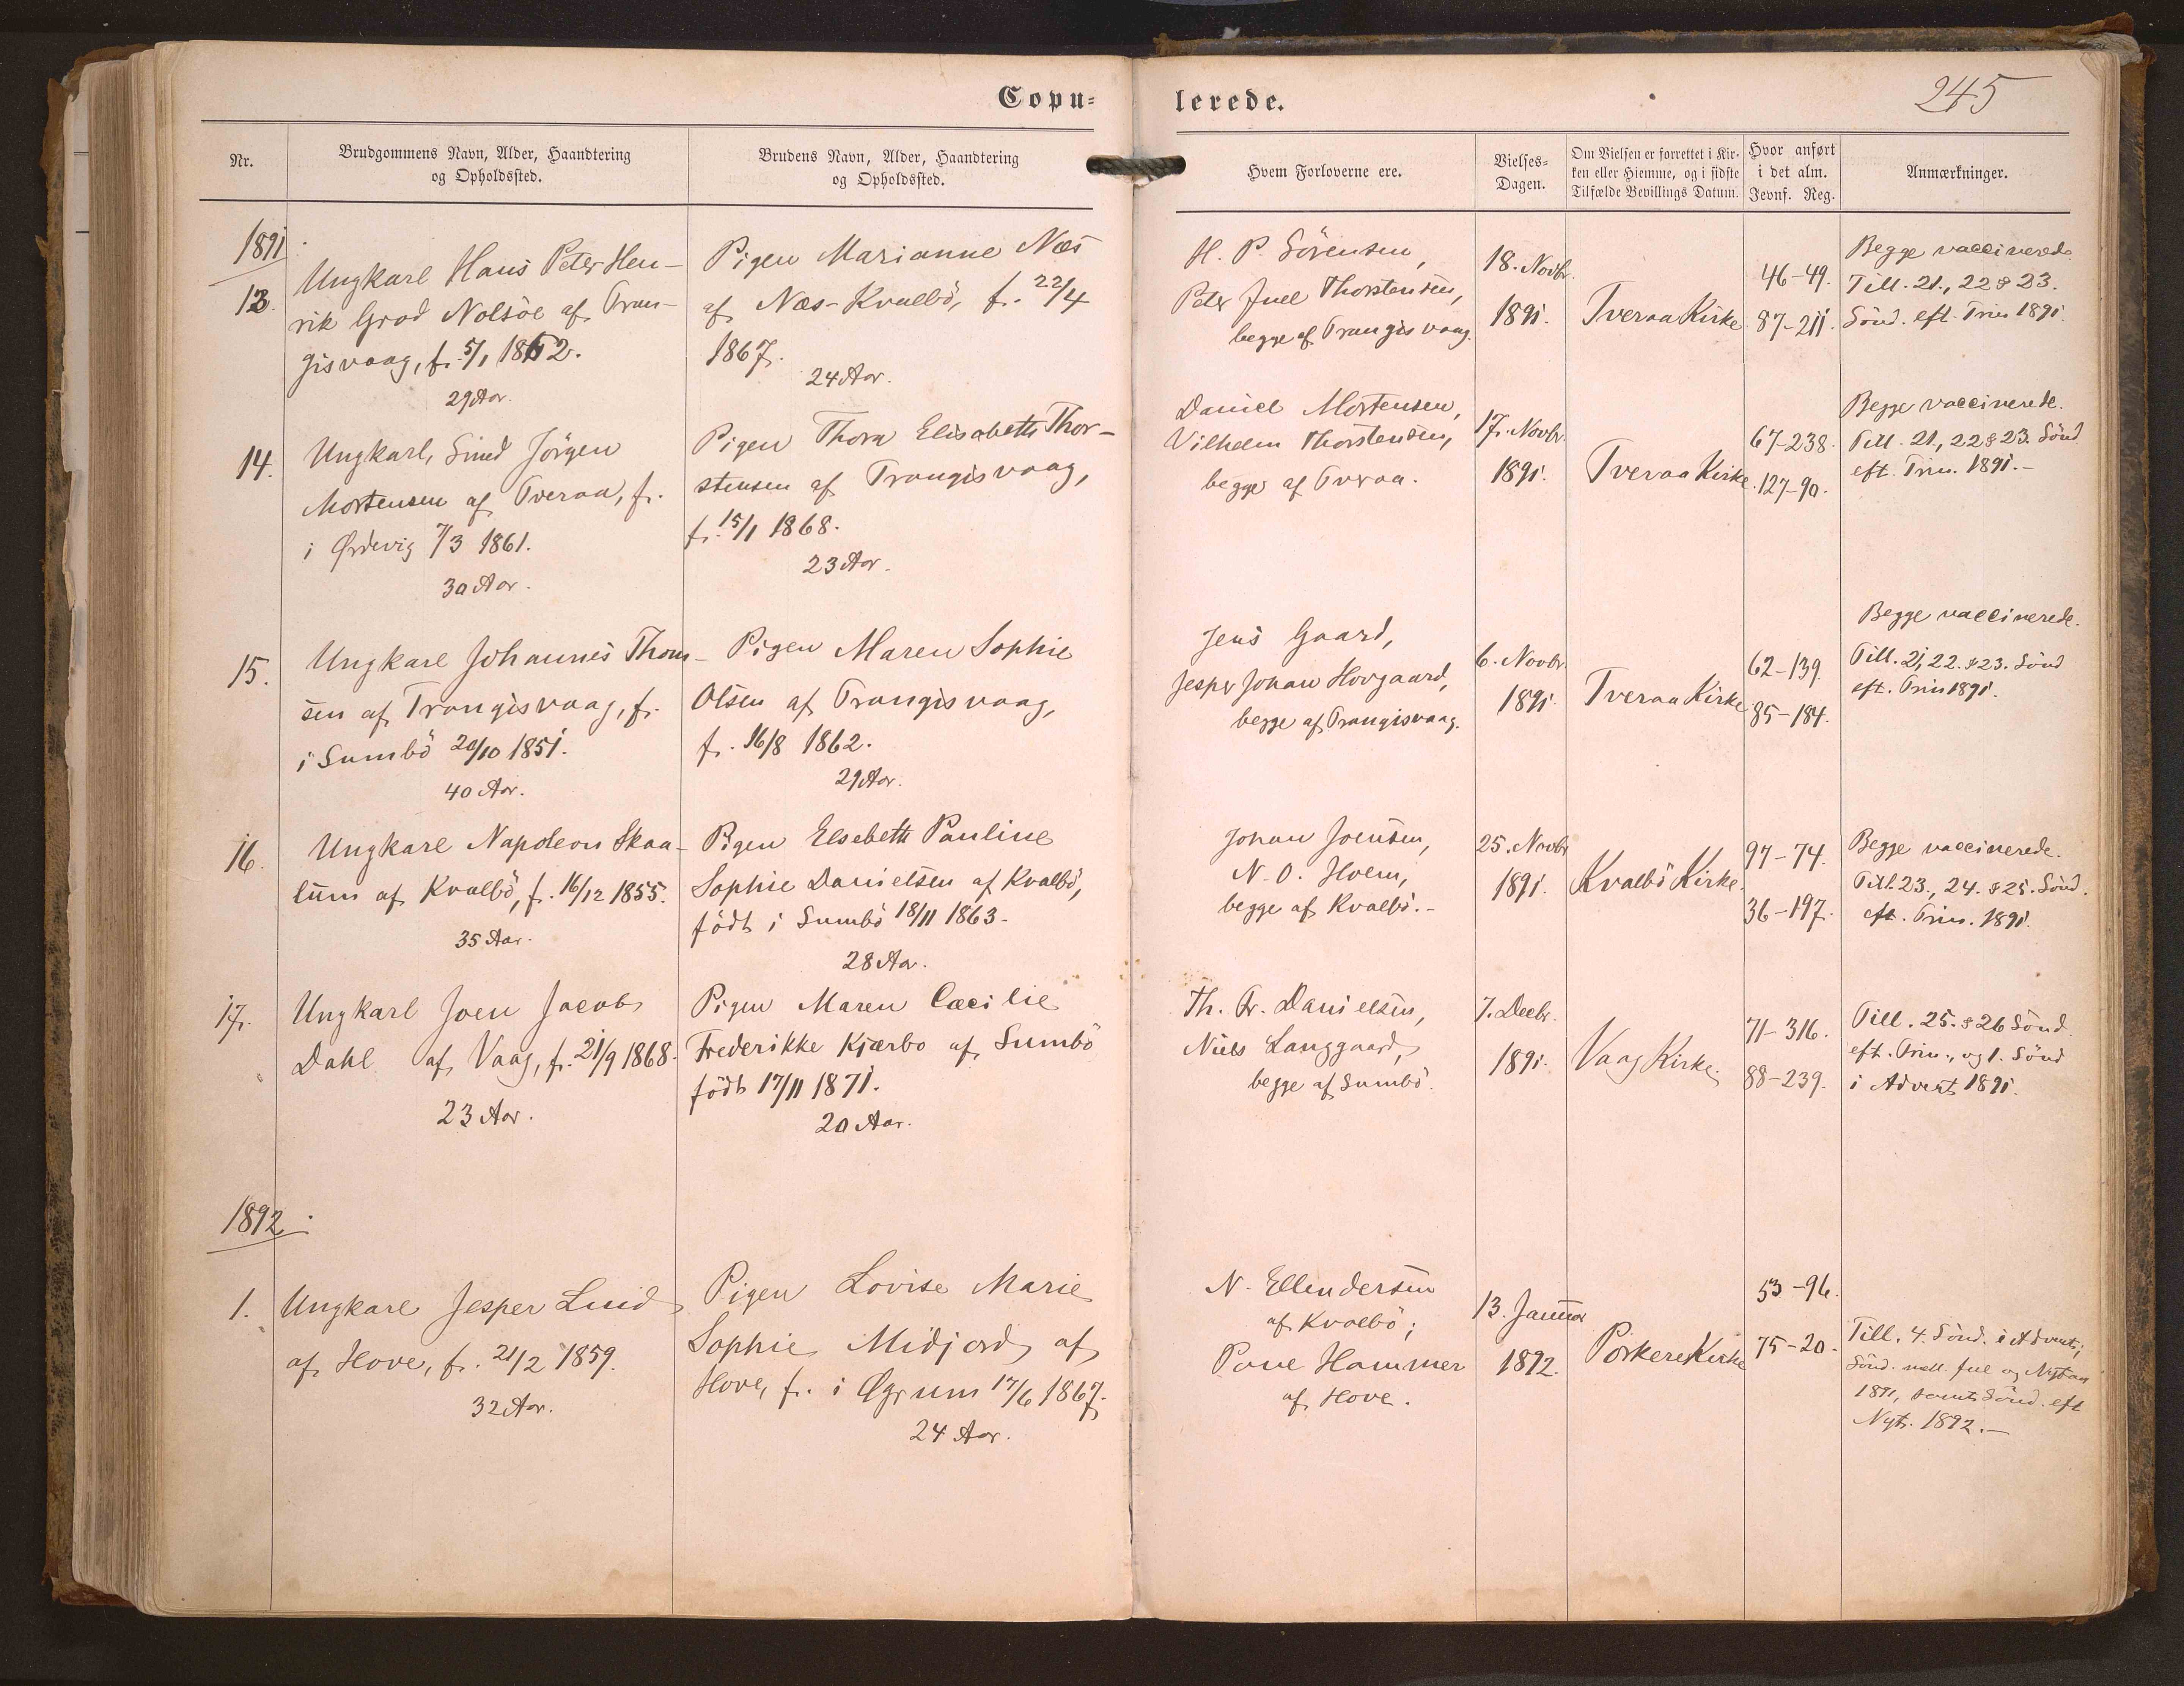 Copu-
lerede.
245
Nr.
Brudgommens Navn, Alder, Haandtering
og Opholdssted.
Brudens Navn, Alder, Haandtering
og Opholdssted.
Hvem Forloverne ere.
Vielses-
Dagen.
Om Vielsen er forrettet i Kir-
ken eller Hjemme, og i sidste
Tilfælde Bevillings Datum.
Hvor anført
i det alm.
Jevnf. Reg.
Anmærkninger.
1891
13.
Ungkarl Hans Peter Hen-
rik Grad Nolsöe af Tran-
gisvaag, f. 5/1 1862.
29 Aar.
Pigen Marianne Næs
af Næs-Kvalbö, f. 22/4
1867.
24 Aar.
H. P. Sörensen,
Peter Juel Thorstensen,
begge af Trangisvaag.
18. Novbr.
1891.
Tveraa Kirke
46-49.
87-211.
Begge vaccinerede.
Till. 21., 22 & 23.
Sönd. eft. Trin 1891.
14.
Ungkarl, Simed Jörgen
Mortensen af Tveraa, f.
i Ørdevig 7/3 1861.
30 Aar.
Pigen Thora Elisabeth Thor-
stensen af Trangisvaag,
f. 15/1 1868.
23 Aar.
Daniel Mortensen,
Vilhelm Thorstensen,
begge af Tveraa.
17. Novbr.
1891.
Tveraa Kirke.
67-238.
127-90.
Begge vaccinerede.
Till. 21., 22 & 23. Sönd.
eft. Trin. 1891.-
15.
Ungkarl Johannes Thom-
sen af Trangisvaag, f.
i Sumbö 20/10 1851.
40 Aar.
Pigen Maren Sophie
Olsen af Trangisvaag,
f. 16/8 1862.
29 Aar.
Jens Gaard,
Jesper Johan Hovgaard,
begge af Trangisvaag.
6. Novbr.
1891.
Tveraa Kirke
62-139.
85-184.
Begge vaccinerede.
Till. 21, 22. & 23. Sönd
eft. Trin 1891.
16.
Ungkarl Napoleon Skaa-
lum af Kvalbö, f. 16/12 1855.
35 Aar.
Pigen Elsebeth Pauline
Sophie Danielsen af Kvalbö,
födt i Sumbö 18/11 1863.
28 Aar.
Johan Joensen,
N. O. Holm,
begge af Kvalbö.-
25. Novbr
1891.
Kvalbö Kirke.
97-74.
36-197.
Begge vaccinerede.
Till. 23., 24. & 25. Sönd.
eft. Trin. 1891.
17.
Ungkarl Joen Jacob
Dahl af Vaag, f. 21/9 1868.
23 Aar.
Pigen Maren Cæcilie
Frederikke Kjærbo af Sumbö
födt 17/11 1871.
20 Aar.
Th. Fr. Danielsen,
Niels Langgaard,
begge af Sumbö.
7. Decbr.
1891.
Vaag Kirke.
71-316.
88-239.
Till. 25. & 26 Sönd.
eft. Trin., og 1. Sönd
i Advent 1891.
1892.
1.
Ungkarl Jesper Luid
af Hove, f. 21/2 1859.
32 Aar.
Pigen Lovise Marie
Sophie Midjord af
Hove, f. i Øgrum 17/6 1867.
24 Aar.
N. Ellendersen
af Kvalbö;
Poul Hammer
af Hove.
13. Januar
1892.
Porkere Kirke
53-96.
75-20.
Till. 4. Sönd. i Advent,
Sönd. mell. Jul og Nytaar
1891, samt Sönd. eft
Nyt. 1892.-